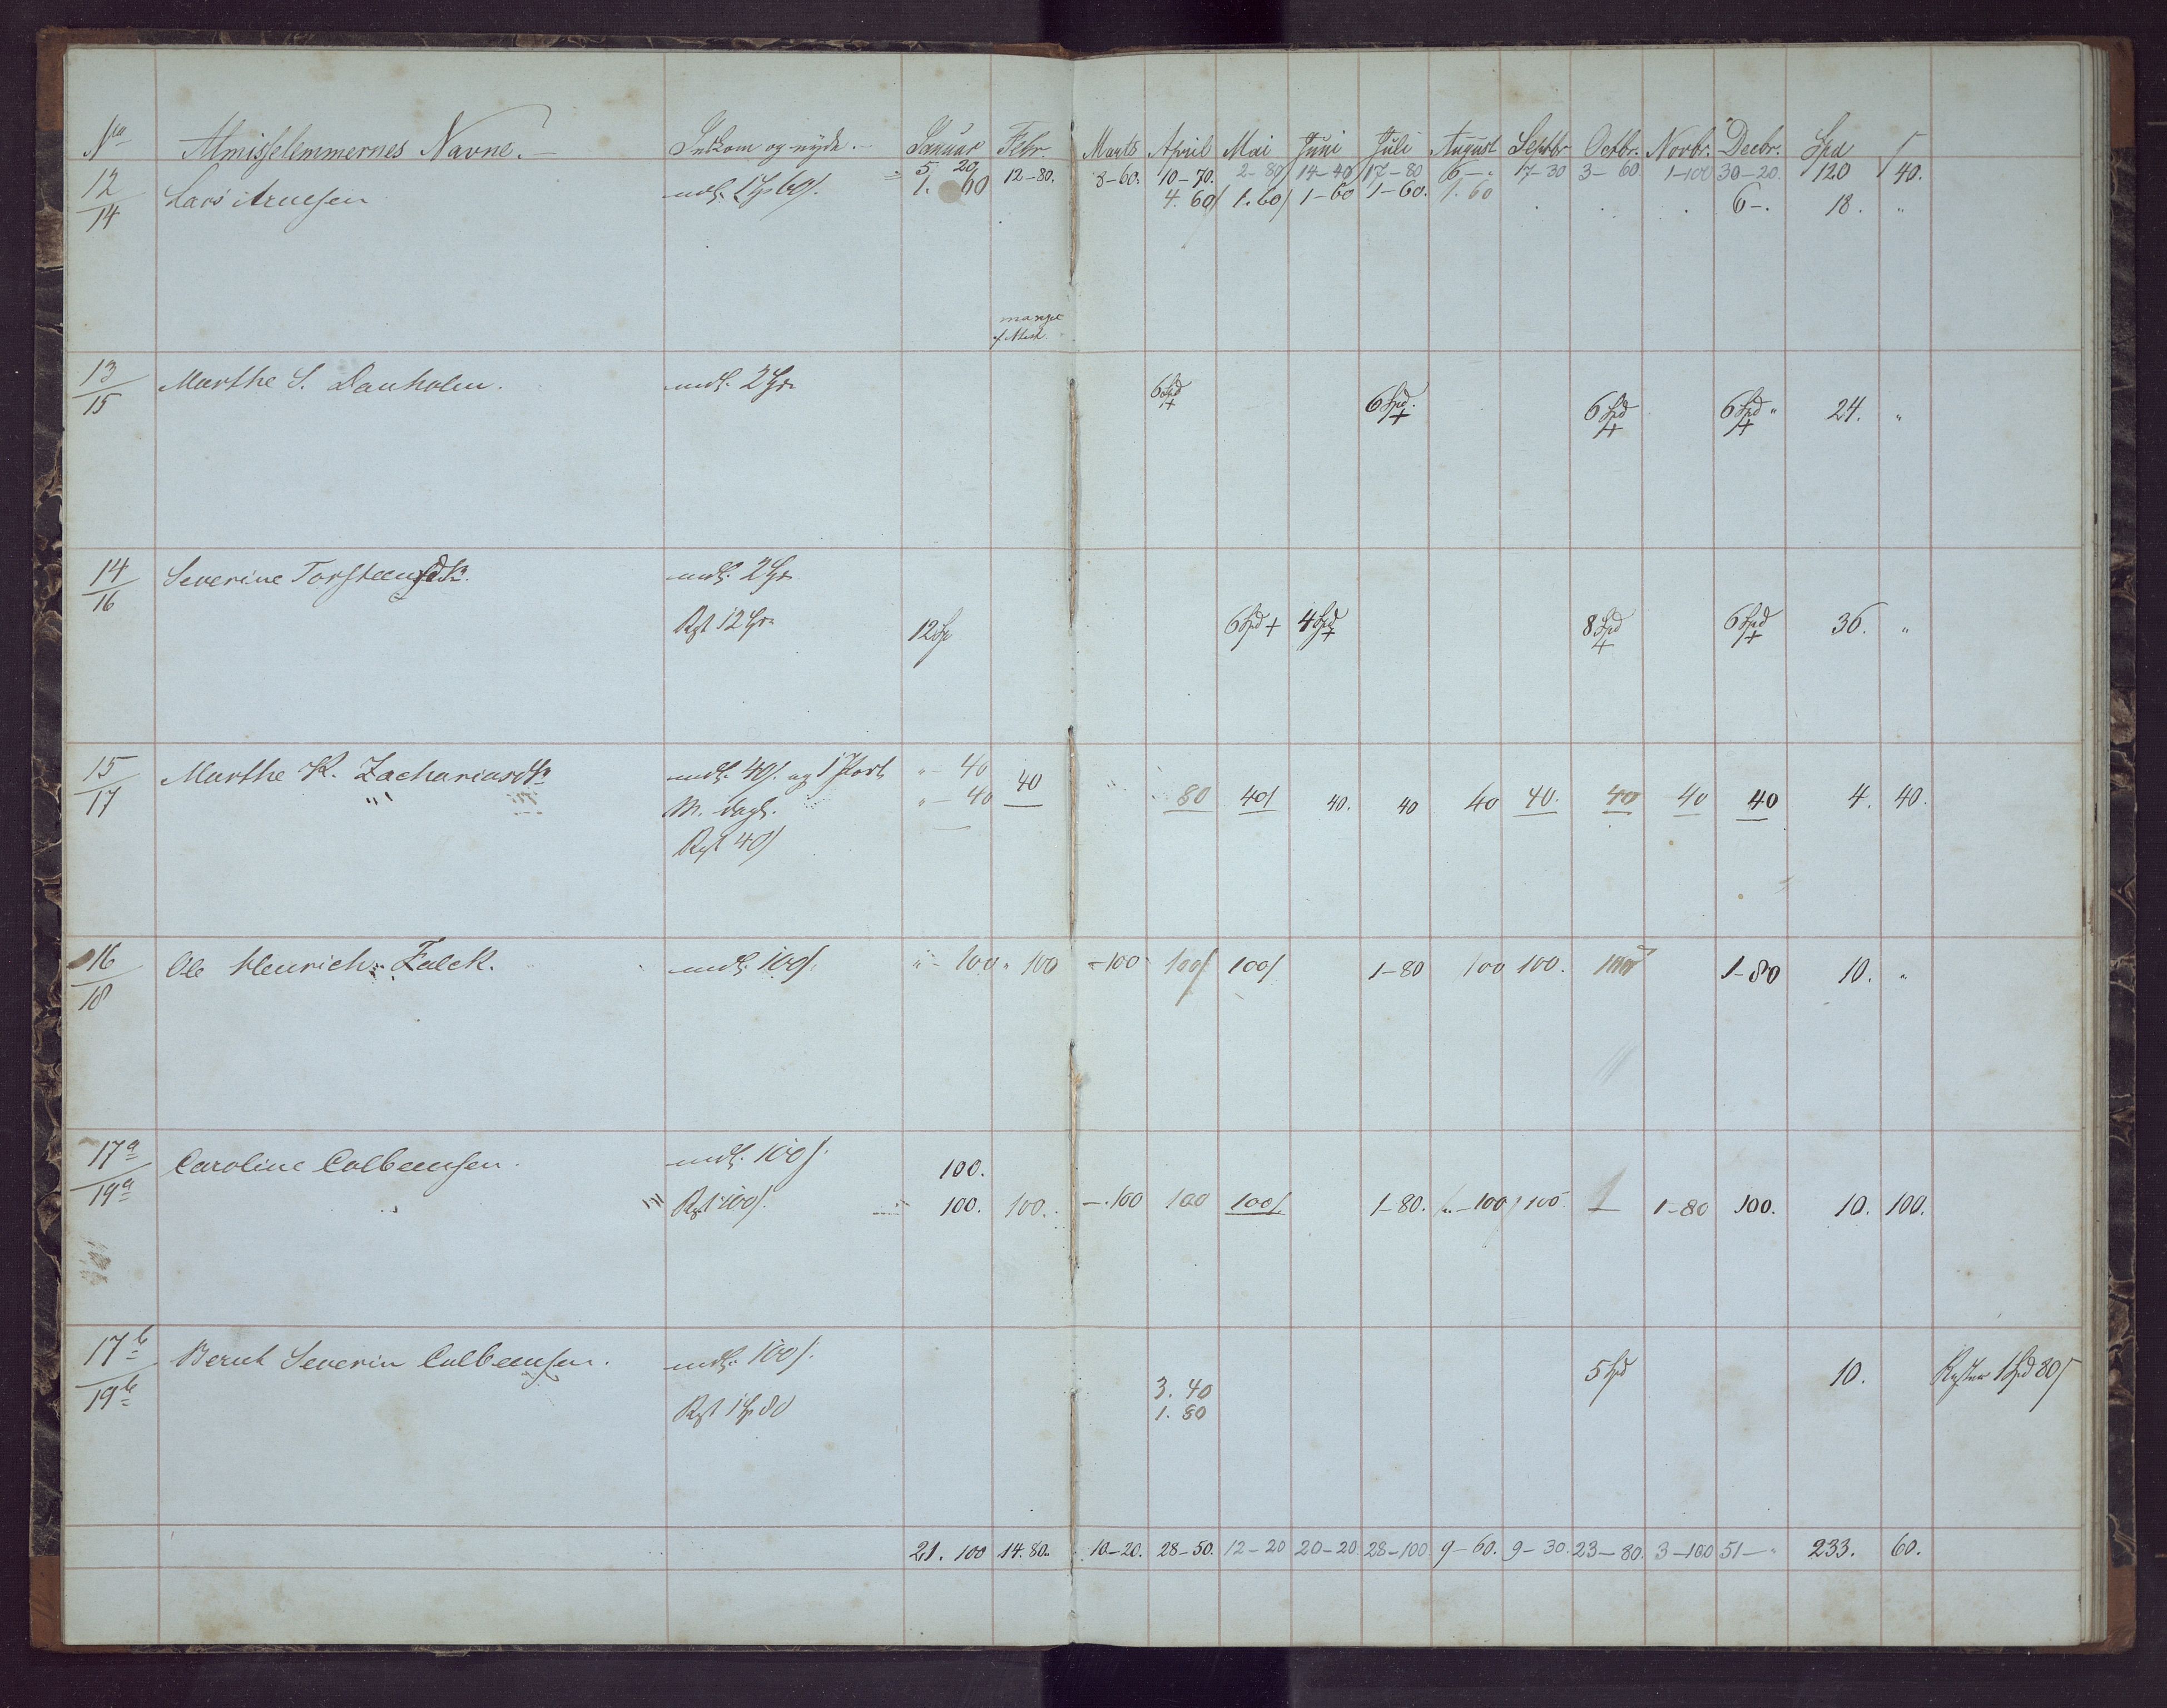 No Almisselemmernes Navne. Januar Febr. Marts April Mai Juni Juli August Septbr. Octbr. Novbr. Decbr. Spd
5. 20 12-80. 8-60. 10-70. 2-80 14-40 17-80 6-" 17-30 3-60 1-100 30-20. 120 40.
12/14 Lars Arnesen mdl. 1 Sp 60 1. 60 4. 60 1. 60 1-60 1-60. 1. 60 6-. 18. "
13/15 Marthe S. Danholm. mdl. 2 Sp 6 Spd + 6 Spd. + 6 Spd + 6 Spd " + 24. "
14/16 Severine Torsteensdtr. mdl. 2 Sp
12 Sp 12 Sp 6 Spd + 4 Spd + 8 Spd + 6 Spd + 36. "
15/17 Marthe K. Zachariasdtr mdl. 40 og 1 "- 40
"- 40 40 80 40 40. 40 40 40. 40 40 40 4. 40.
M. dagl.
40
16/18 Ole Henrich Falck. mdl. 100 "- 100 " 100 -100 100 100 1-80 100 100. 100 1-80 10. "
17a/19a Caroline Colbeensen. mdl. 100 100.
100 100. 100. -.100 100 100 1-80. "-100 100 1 1-80 100. 10. 100.
17b/19b Bernt Severin Colbeensen. mdl. 100 5 Spd 10. 1 Spd 80
1 Sp 80 3. 40
1. 80
21. 100 14. 80. 10-20. 28-50. 12-20 20-20 28-100 9-60. 9-30. 23-80. 3-100 51-" 233. 60.